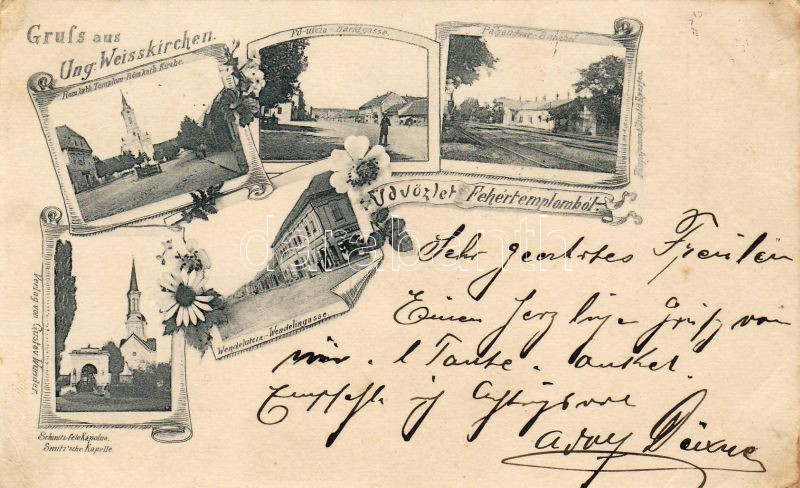 Gruſs aus
Ung. Weisskirchen.
Rom. kath. Templom - Röm. kath. Kirche.
Fö-utcza - Marktgasse.
Pályaudvar - Bahnhof.
Üdvözlet Fehértemplomból
darabanth
Wendelutcza - Wendelingasse.
Verlag von Gustav Wunder.
Schmitz-féle Kápolna.
Smitz'sche Kapelle
Sehr geehrtes Fräulein
Einen herzliche Gruß von
mir. Tante. onkel.
Empfehle
Adolf